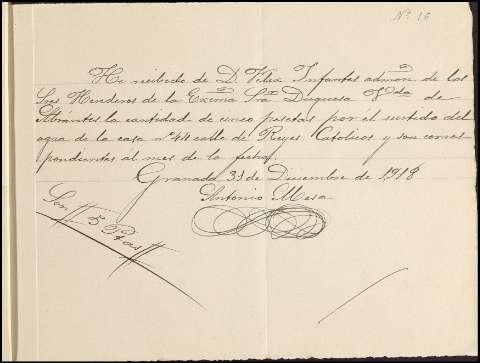 Nº 16
He recibido de D. Felix Infantes admon. de los
Sres Herederos de la Excma Sra Duquesa Vda de
Abrantes la cantidad de cinco pesetas por el surtido del
agua de la casa nº 44 calle de Reyes Catolicos y son corres-
pondientes al mes de la fecha.
Granada 31 de Diciembre de 1918
Antonio Mesa
Son 5 Ptas